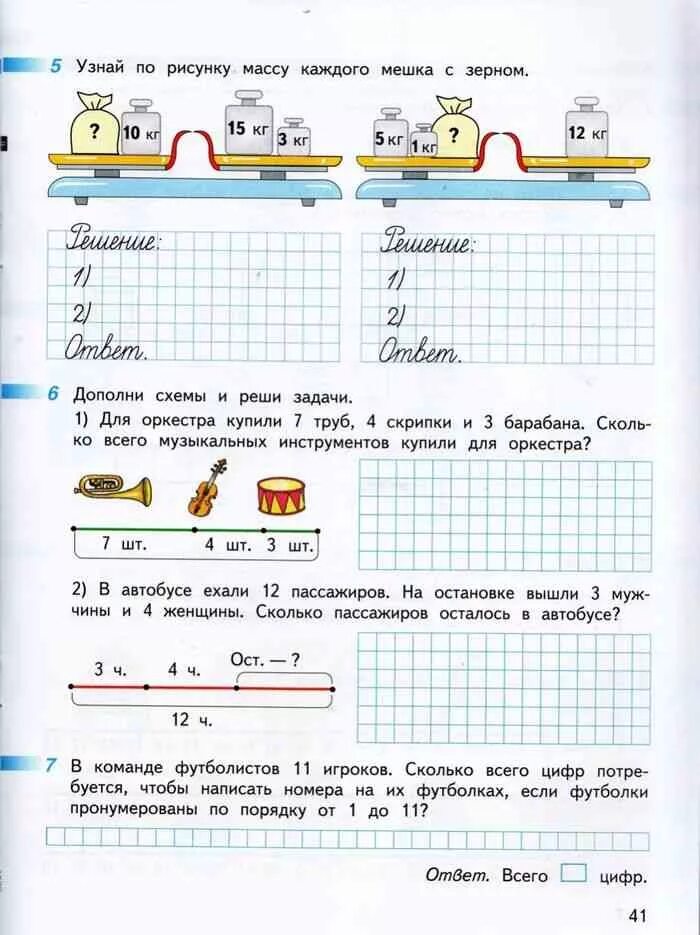 5 Узнай по рисунку массу каждого мешка с зерном.
? 10 кг 15 кг 3 кг 5 кг 1 кг ? 12 кг
Решение: Решение:
1) 1)
2) 2)
Ответ. Ответ.
6 Дополни схемы и реши задачи.
1) Для оркестра купили 7 труб, 4 скрипки и 3 барабана. Сколь-
ко всего музыкальных инструментов купили для оркестра?
7 шт. 4 шт. 3 шт.
2) В автобусе ехали 12 пассажиров. На остановке вышли 3 муж-
чины и 4 женщины. Сколько пассажиров осталось в автобусе?
3 ч. 4 ч. Ост. — ?
12 ч.
7 В команде футболистов 11 игроков. Сколько всего цифр потре-
буется, чтобы написать номера на их футболках, если футболки
пронумерованы по порядку от 1 до 11?
Ответ. Всего цифр.
41